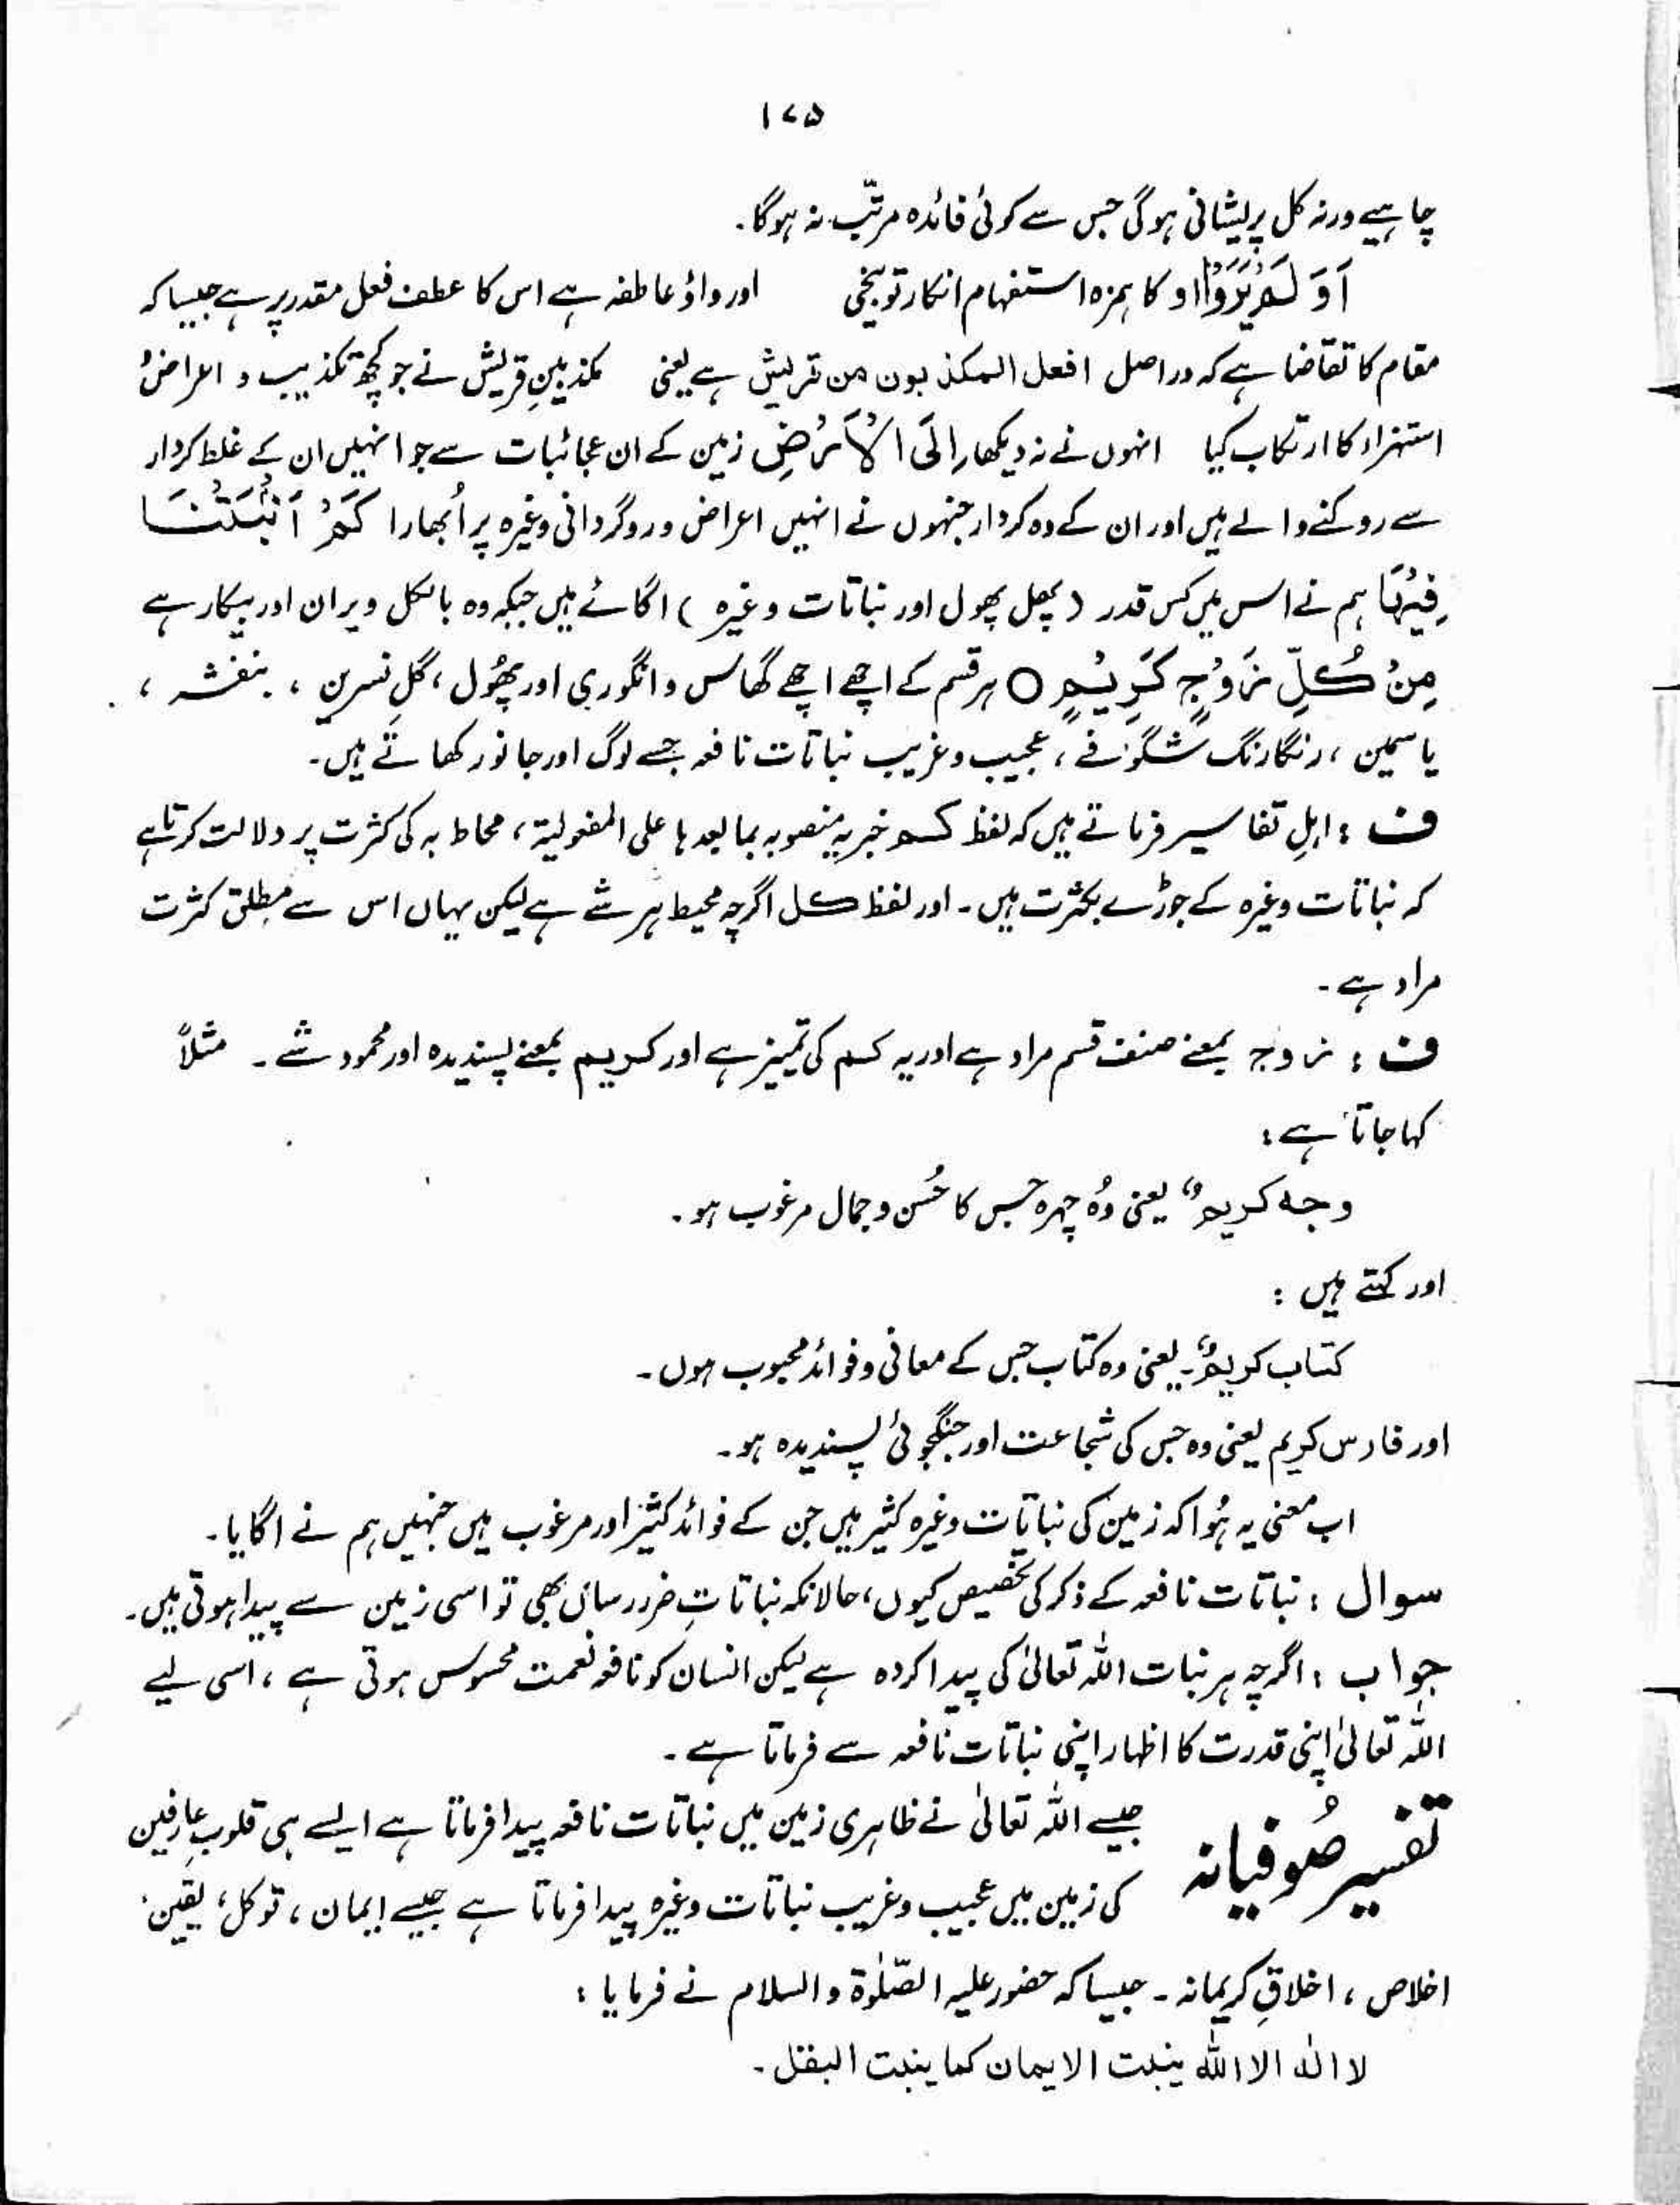 ۱۷۵
چاہیے ورنہ کل پریشانی ہوگی جس سے کوئی فائدہ مرتّب نہ ہوگا۔
اَوَ لَمْ یَرَوْا او کا ہمزہ استفہام انکار توبیخی اور واؤ عاطفہ ہے اس کا عطف فعل مقدر پر ہے جیسا کہ
مقام کا تقاضا ہے کہ دراصل افعل المکذبون من قریش ہے یعنی مکذبینِ قریش نے جو کچھ تکذیب و اعراض و
استہزاء کا ارتکاب کیا انہوں نے نہ دیکھا اِلَی الْاَرْضِ زمین کے ان عجائبات سے جو انہیں ان کے غلط کردار
سے روکنے والے ہیں اور ان کے وہ کردار جنہوں نے انہیں اعراض و روگردانی وغیرہ پر اُبھارا کَمْ اَنْبَتْنَا
فِیْهَا ہم نے اس میں کس قدر (پھل پھول اور نباتات وغیرہ) اگائے ہیں جبکہ وہ بالکل ویران اور بیکار ہے
مِنْ کُلِّ زَوْجٍ کَرِیْمٍ ○ ہر قسم کے اچھے اچھے گھاس و انگوری اور پھُول، گلِ نسرین، بنفشہ،
یاسمین، رنگارنگ شگوفے، عجیب و غریب نباتات نافعہ جسے لوگ اور جانور کھاتے ہیں۔
ف : اہلِ تفاسیر فرماتے ہیں کہ لفظ کم خبریہ منصوبہ بما بعدہا علی المفعولیۃ، محاط بہ کی کثرت پر دلالت کرتا ہے
کہ نباتات وغیرہ کے جوڑے بکثرت ہیں۔ اور لفظ کل اگرچہ محیط ہر شے ہے لیکن یہاں اس سے مطلق کثرت
مراد ہے۔
ف : زوج بمعنے صنف قسم مراد ہے اور یہ کم کی تمییز ہے اور کریم بمعنے پسندیدہ اور محمود شے۔ مثلاً
کہا جاتا ہے :
وجہ کریمٌ یعنی وُہ چہرہ جس کا حُسن و جمال مرغوب ہو۔
اور کہتے ہیں :
کتاب کریمٌ۔ یعنی وہ کتاب جس کے معانی و فوائد محبوب ہوں۔
اور فارس کریم یعنی وہ جس کی شجاعت اور جنگجوئی پسندیدہ ہو۔
اب معنی یہ ہُوا کہ زمین کی نباتات وغیرہ کثیر ہیں جن کے فوائد کثیر اور مرغوب ہیں جنہیں ہم نے اگایا۔
سوال : نباتات نافعہ کے ذکر کی تخصیص کیوں، حالانکہ نباتاتِ ضرر رساں بھی تو اسی زمین سے پیدا ہوتی ہیں۔
جواب : اگرچہ ہر نبات اللہ تعالیٰ کی پیدا کردہ ہے لیکن انسان کو نافع نعمت محسوس ہوتی ہے، اسی لیے
اللہ تعالیٰ اپنی قدرت کا اظہار اپنی نباتات نافعہ سے فرماتا ہے۔
تفسیر صُوفیانہ جیسے اللہ تعالیٰ نے ظاہری زمین میں نباتات نافعہ پیدا فرماتا ہے ایسے ہی قلوبِ عارفین
کی زمین میں عجیب و غریب نباتات وغیرہ پیدا فرماتا ہے جیسے ایمان، توکل، یقین،
اخلاص، اخلاقِ کریمانہ۔ جیسا کہ حضور علیہ الصّلوٰۃ والسلام نے فرمایا :
لا الٰہ الا اللہ ینبت الایمان کما ینبت البقل۔